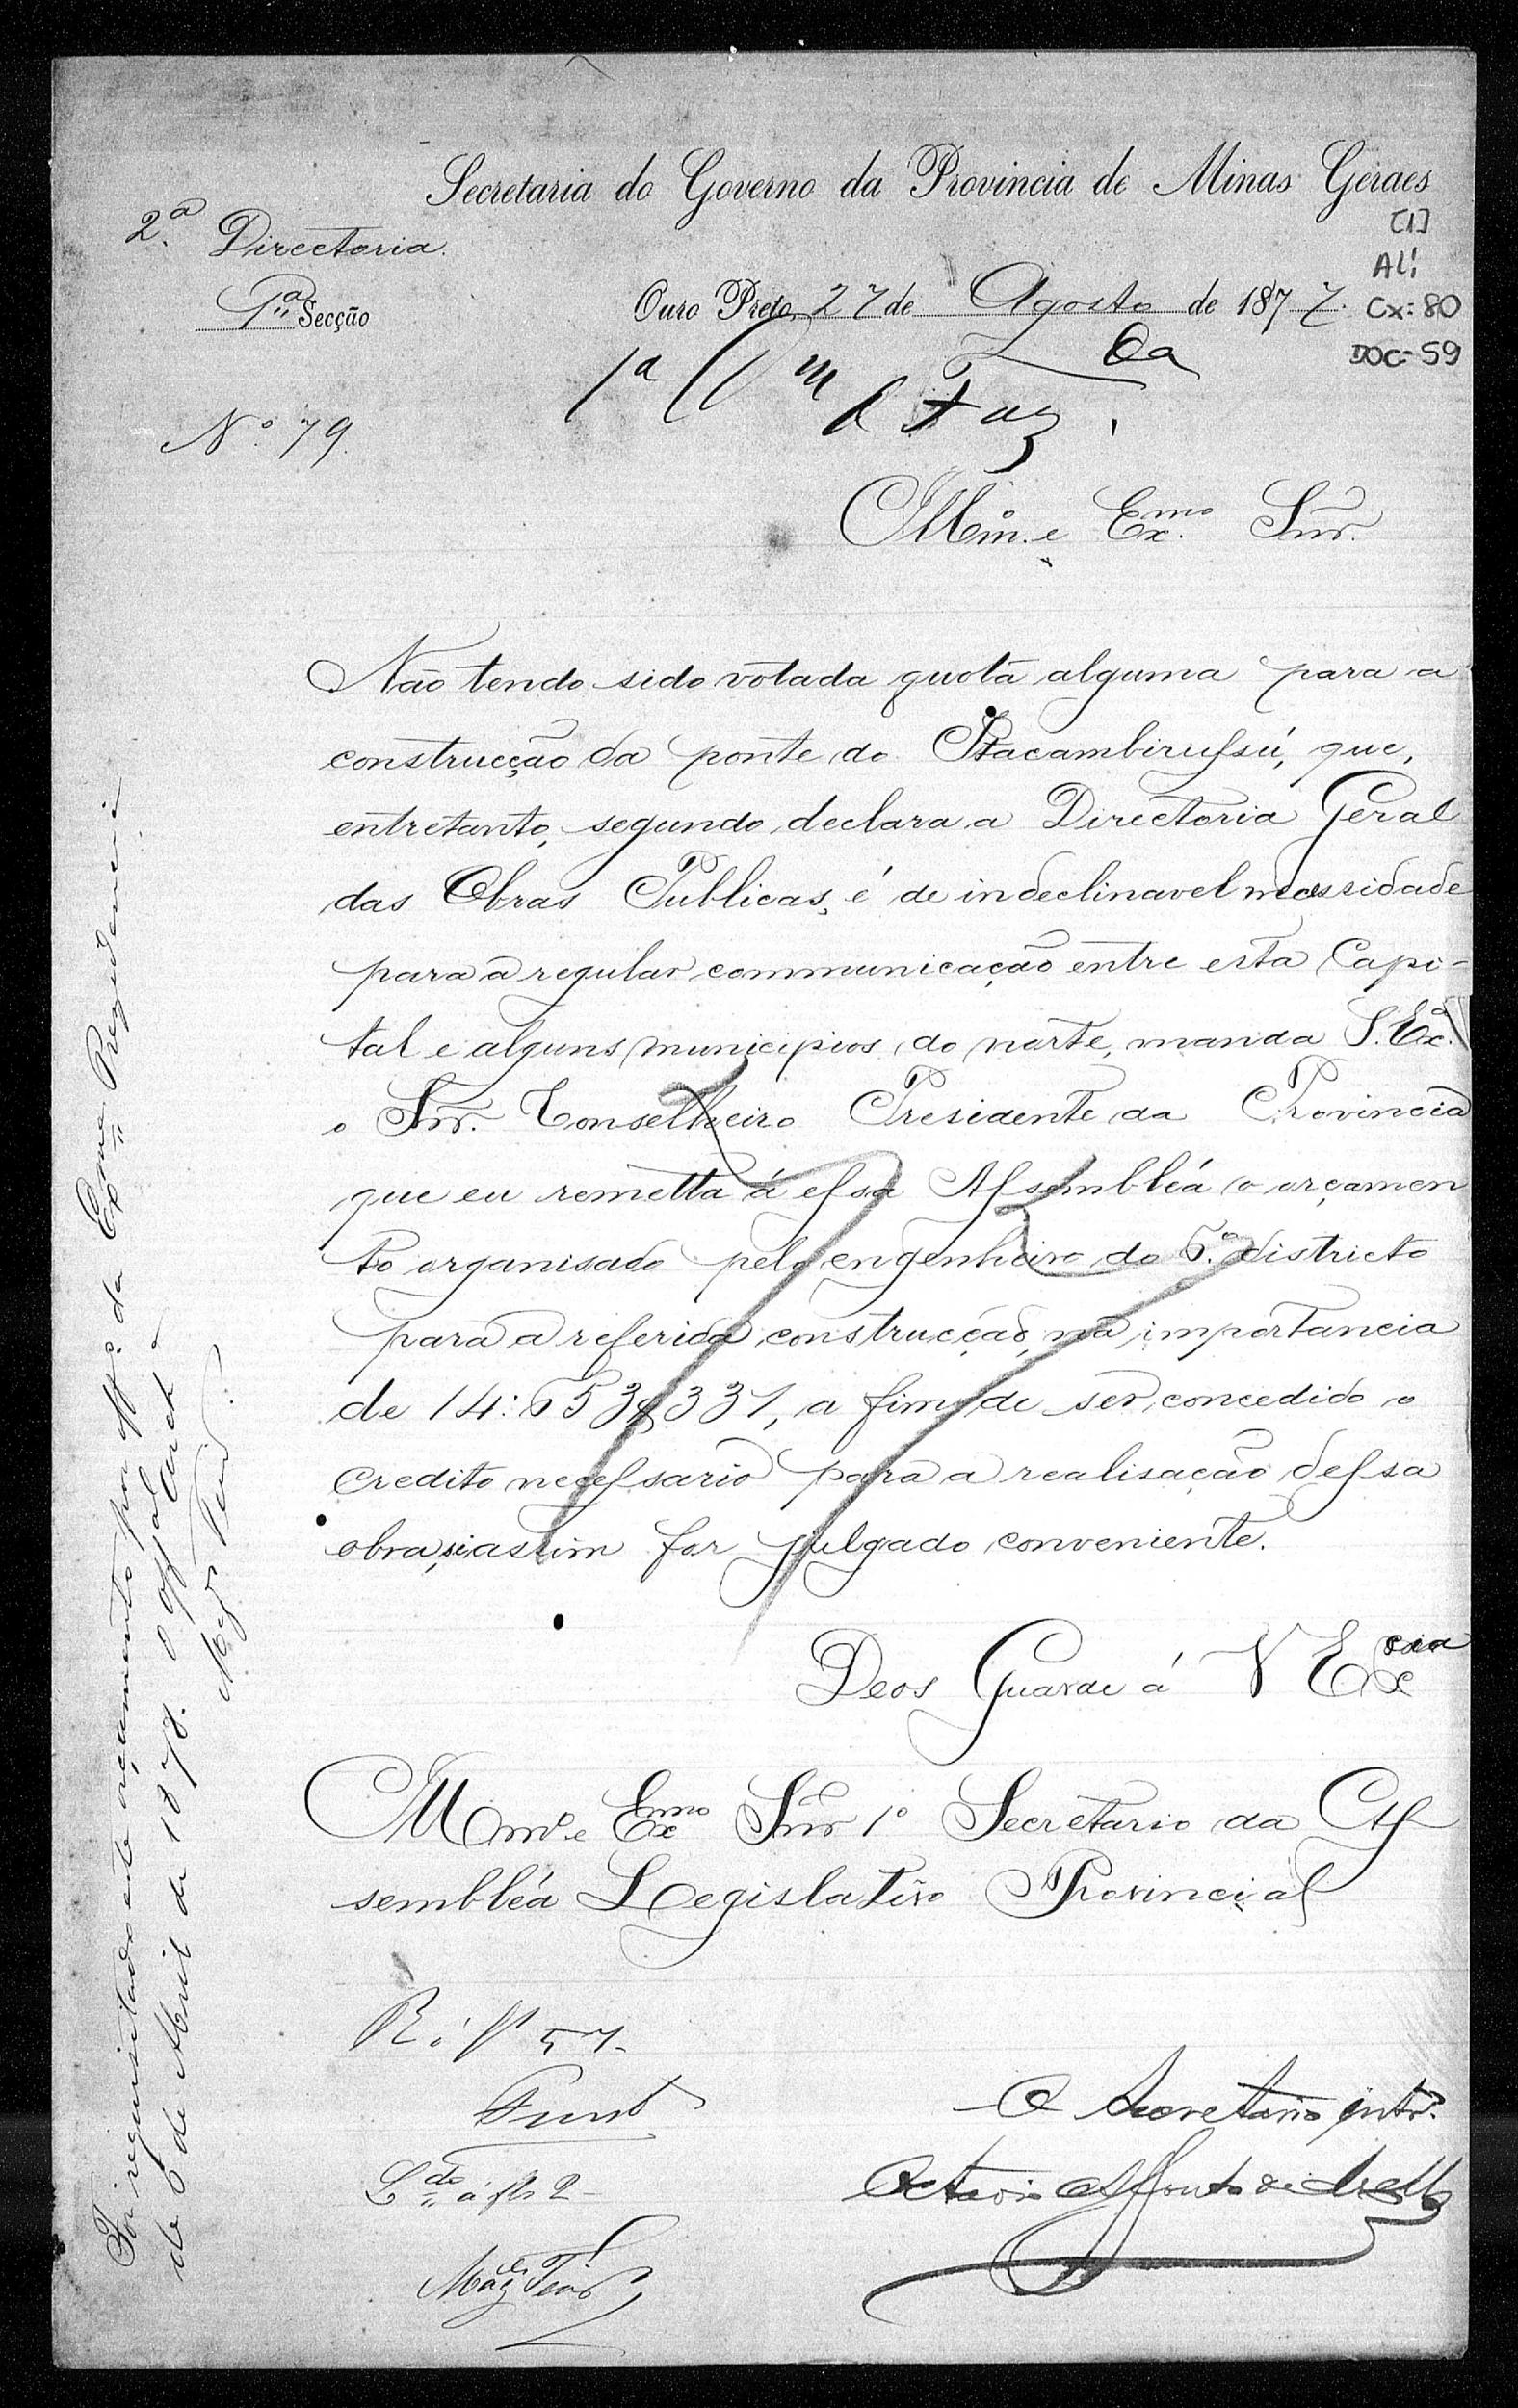 Secretaria do Governo da Provincia de Minas Geraes
2.ª Directoria.
1ª Secção
Ouro Preto, 27 de Agosto de 1877.
[1]
AL1
Cx: 80
DOC- 59
Nº 79.
Illm.º e Ex.mo Snr.
Não tendo sido votada quota alguma para a
construcção da ponte do Itacambirussú, que,
entretanto, segundo declara a Directoria Geral
das Obras Publicas, é de indeclinavel necessidade
para a regular communicação entre esta Capi-
tal e alguns municipios do norte, manda S. Ex.ª
o Snr. Conselheiro Presidente da Provincia
que eu remetta á essa Assembléa o orçamen
to organisado pelo engenheiro do 6.º districto
para a referida construcção, na importancia
de 14:653$331, a fim de ser concedido o
credito necessario para a realisação dessa
obra, si assim for julgado conveniente.
Deos Guarde á V Ex.cia
Illm.º e Ex.mo Snr 1º Secretario da As
sembléa Legislativa Provincial
O Secretario intr.º
Octavio Affonso de Mello
R. á fl 57-
L.do á fls 2-
Foi requisitado este orçamento por off.º da Ex.ma Presidencia
de 6 de Abril de 1878. O Off.al Arch.ª